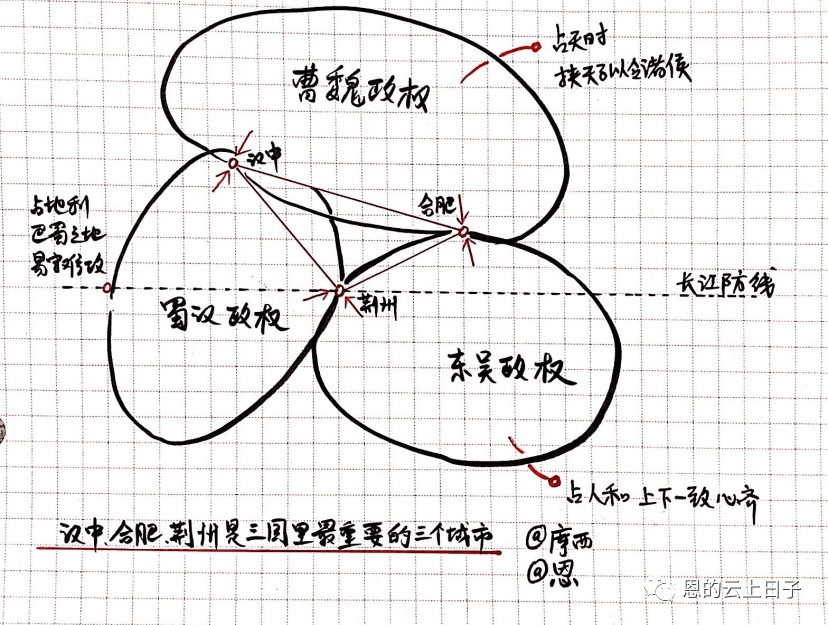 曹魏政权
占天时
挟天子以令诸侯
汉中
合肥
占地利
巴蜀之地
易守难攻
长江防线
荆州
蜀汉政权
东吴政权
占人和 上下一致心齐
汉中、合肥、荆州是三国里最重要的三个城市
@摩西
@恩
恩的云上日子